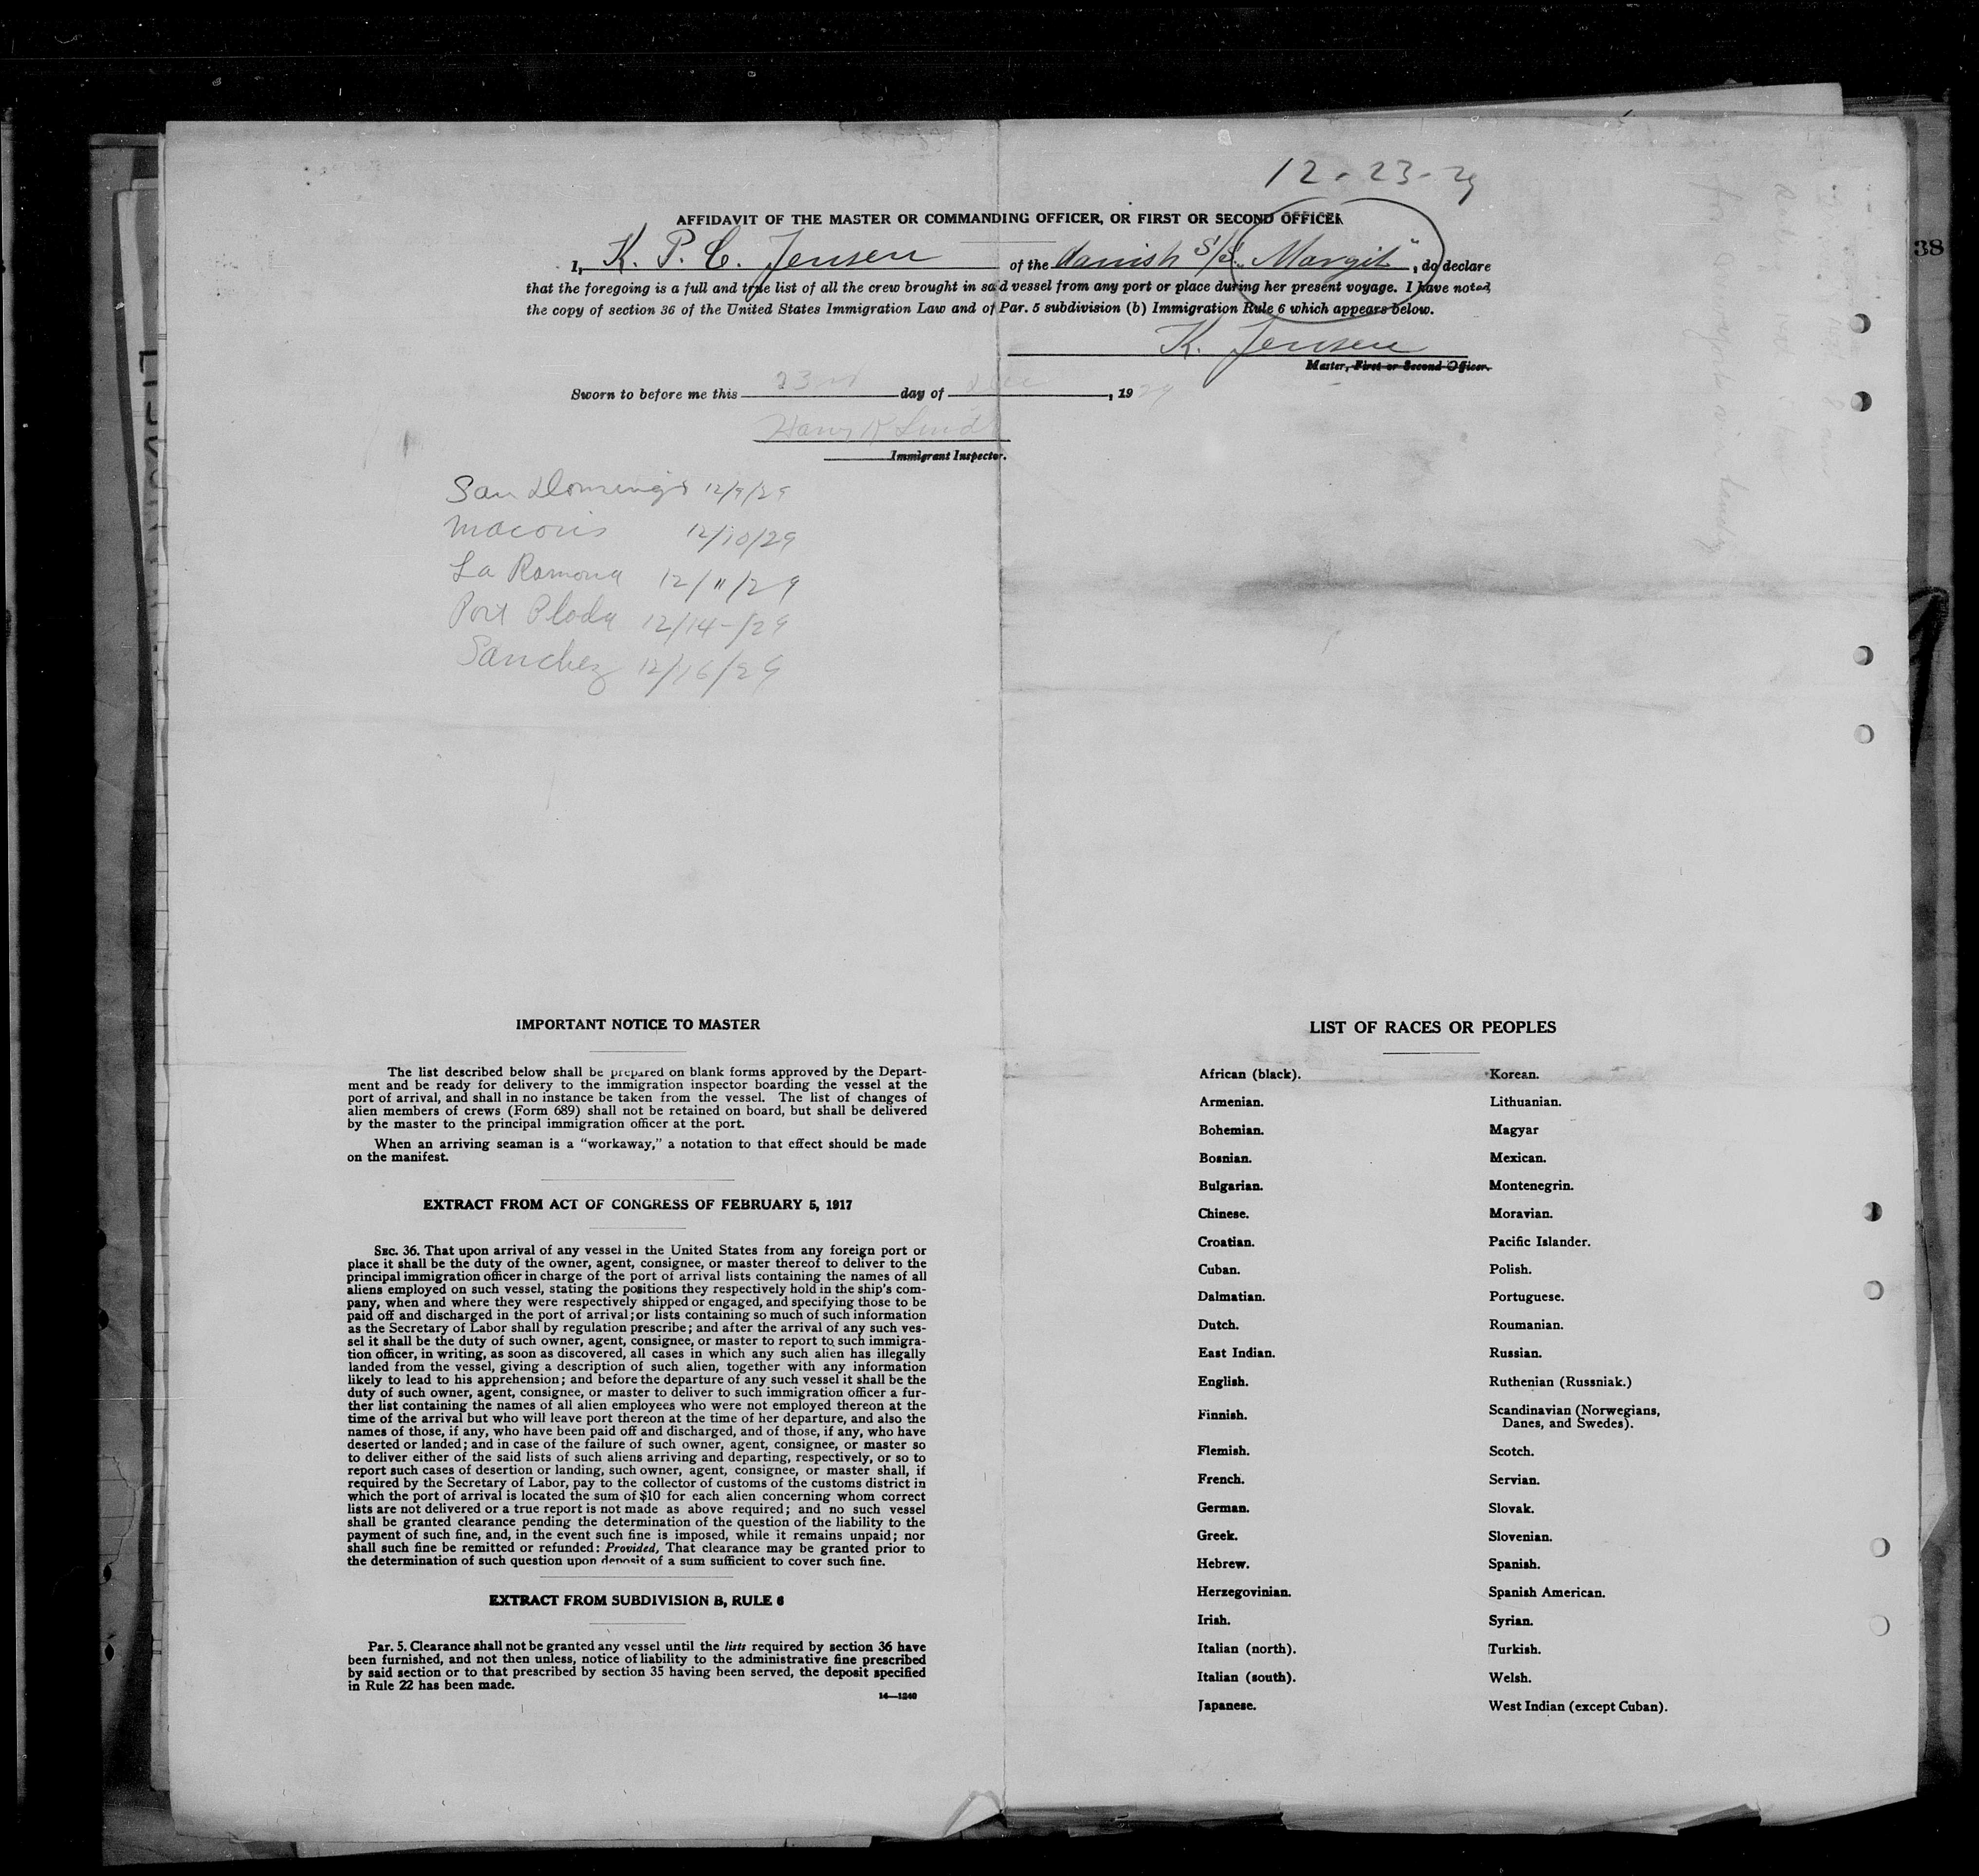 12-23-29
38
AFFIDAVIT OF THE MASTER OR COMMANDING OFFICER, OR FIRST OR SECOND OFFICER
I, K. P. C. Jensen of the danish S/S. „Margit", do declare
that the foregoing is a full and true list of all the crew brought in said vessel from any port or place during her present voyage. I have noted
the copy of section 36 of the United States Immigration Law and of Par. 5 subdivision (b) Immigration Rule 6 which appears below.
K. Jensen
Master, First or Second Officer.
Sworn to before me this 23rd day of Dec, 1929
Harry R
Immigrant Inspector.
San Domingo 12/9/29
Macoris 12/10/29
La Romona 12/11/29
Port Plada 12/14-/29
Sanchez 12/16/29
IMPORTANT NOTICE TO MASTER
The list described below shall be prepared on blank forms approved by the Depart-
ment and be ready for delivery to the immigration inspector boarding the vessel at the
port of arrival, and shall in no instance be taken from the vessel. The list of changes of
alien members of crews (Form 689) shall not be retained on board, but shall be delivered
by the master to the principal immigration officer at the port.
When an arriving seaman is a "workaway," a notation to that effect should be made
on the manifest.
EXTRACT FROM ACT OF CONGRESS OF FEBRUARY 5, 1917
SEC. 36. That upon arrival of any vessel in the United States from any foreign port or
place it shall be the duty of the owner, agent, consignee, or master thereof to deliver to the
principal immigration officer in charge of the port of arrival lists containing the names of all
aliens employed on such vessel, stating the positions they respectively hold in the ship's com-
pany, when and where they were respectively shipped or engaged, and specifying those to be
paid off and discharged in the port of arrival; or lists containing so much of such information
as the Secretary of Labor shall by regulation prescribe; and after the arrival of any such ves-
sel it shall be the duty of such owner, agent, consignee, or master to report to such immigra-
tion officer, in writing, as soon as discovered, all cases in which any such alien has illegally
landed from the vessel, giving a description of such alien, together with any information
likely to lead to his apprehension; and before the departure of any such vessel it shall be the
duty of such owner, agent, consignee, or master to deliver to such immigration officer a fur-
ther list containing the names of all alien employees who were not employed thereon at the
time of the arrival but who will leave port thereon at the time of her departure, and also the
names of those, if any, who have been paid off and discharged, and of those, if any, who have
deserted or landed; and in case of the failure of such owner, agent, consignee, or master so
to deliver either of the said lists of such aliens arriving and departing, respectively, or so to
report such cases of desertion or landing, such owner, agent, consignee, or master shall, if
required by the Secretary of Labor, pay to the collector of customs of the customs district in
which the port of arrival is located the sum of $10 for each alien concerning whom correct
lists are not delivered or a true report is not made as above required; and no such vessel
shall be granted clearance pending the determination of the question of the liability to the
payment of such fine, and, in the event such fine is imposed, while it remains unpaid; nor
shall such fine be remitted or refunded: Provided, That clearance may be granted prior to
the determination of such question upon deposit of a sum sufficient to cover such fine.
EXTRACT FROM SUBDIVISION B, RULE 6
Par. 5. Clearance shall not be granted any vessel until the lists required by section 36 have
been furnished, and not then unless, notice of liability to the administrative fine prescribed
by said section or to that prescribed by section 35 having been served, the deposit specified
in Rule 22 has been made.
14—1240
LIST OF RACES OR PEOPLES
African (black).
Armenian.
Bohemian.
Bosnian.
Bulgarian.
Chinese.
Croatian.
Cuban.
Dalmatian.
Dutch.
East Indian.
English.
Finnish.
Flemish.
French.
German.
Greek.
Hebrew.
Herzegovinian.
Irish.
Italian (north).
Italian (south).
Japanese.
Korean.
Lithuanian.
Magyar
Mexican.
Montenegrin.
Moravian.
Pacific Islander.
Polish.
Portuguese.
Roumanian.
Russian.
Ruthenian (Russniak.)
Scandinavian (Norwegians,
Danes, and Swedes).
Scotch.
Servian.
Slovak.
Slovenian.
Spanish.
Spanish American.
Syrian.
Turkish.
Welsh.
West Indian (except Cuban).